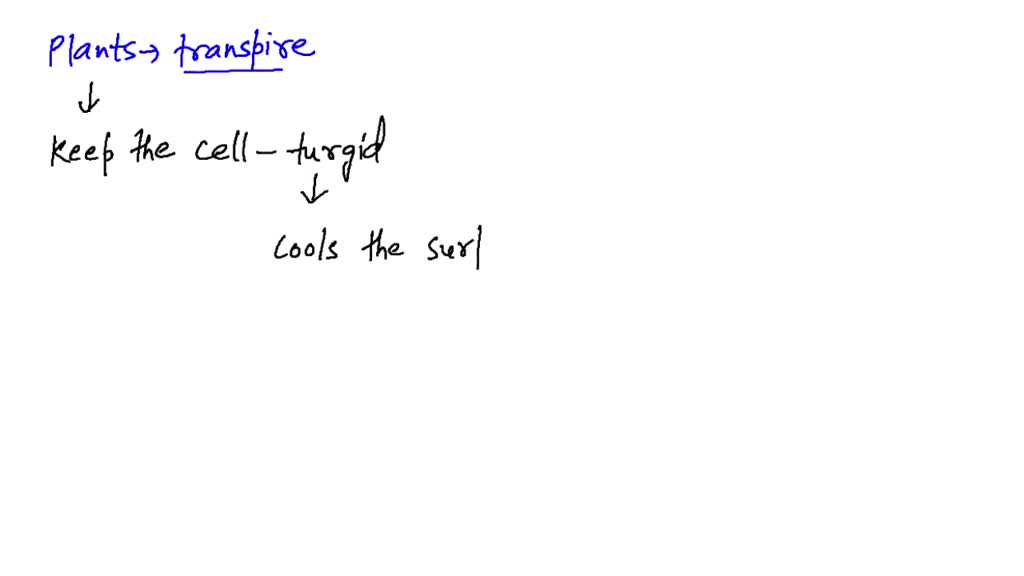 Plants → transpire
↓
Keep the cell - turgid
↓
Cools the surf